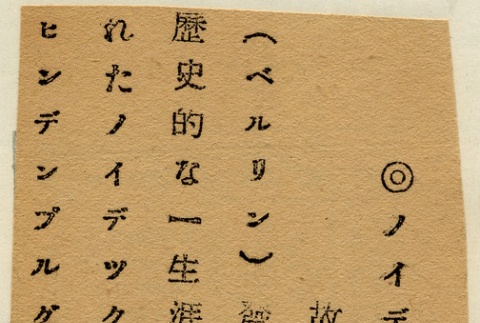 ◎ノイデ
故
(ベルリン)
歴史的な一生涯
れたノイデツク
ヒンデンブルグ